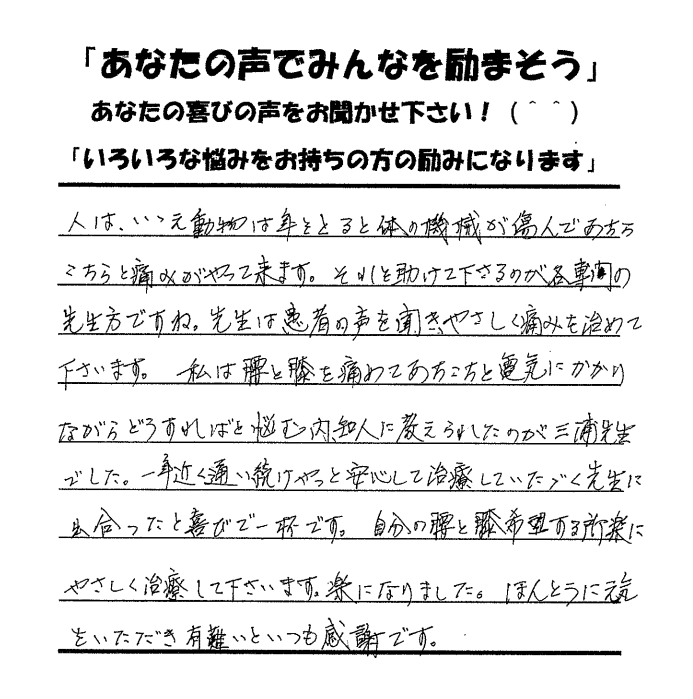 「あなたの声でみんなを励まそう」
あなたの喜びの声をお聞かせ下さい！（＾＾）
「いろいろな悩みをお持ちの方の励みになります」
人は、いゝえ動物は年をとると体の機械が傷んであちら
こちらと痛みがやって来ます。それを助けて下さるのが各専門の
先生方ですね。先生は患者の声を聞きやさしく痛みを治めて
下さいます。 私は腰と膝を痛めてあちこちと電気にかかり
ながらどうすればと悩む内、知人に教えられたのが三浦先生
でした。一年近く通い続けやっと安心して治療していたゞく先生に
出合ったと喜びで一杯です。 自分の腰と膝希望する所楽に
やさしく治療して下さいます。楽になりました。 ほんとうに元気
をいただき有難いといつも感謝です。